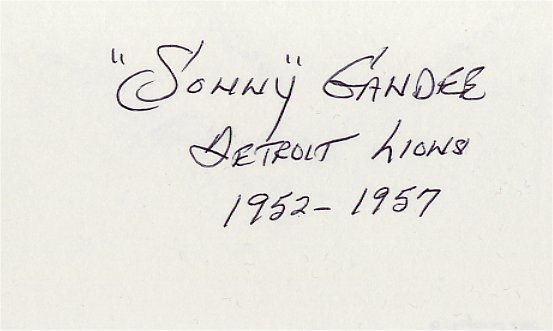 "Sonny" Gandee
Detroit Lions
1952-1957